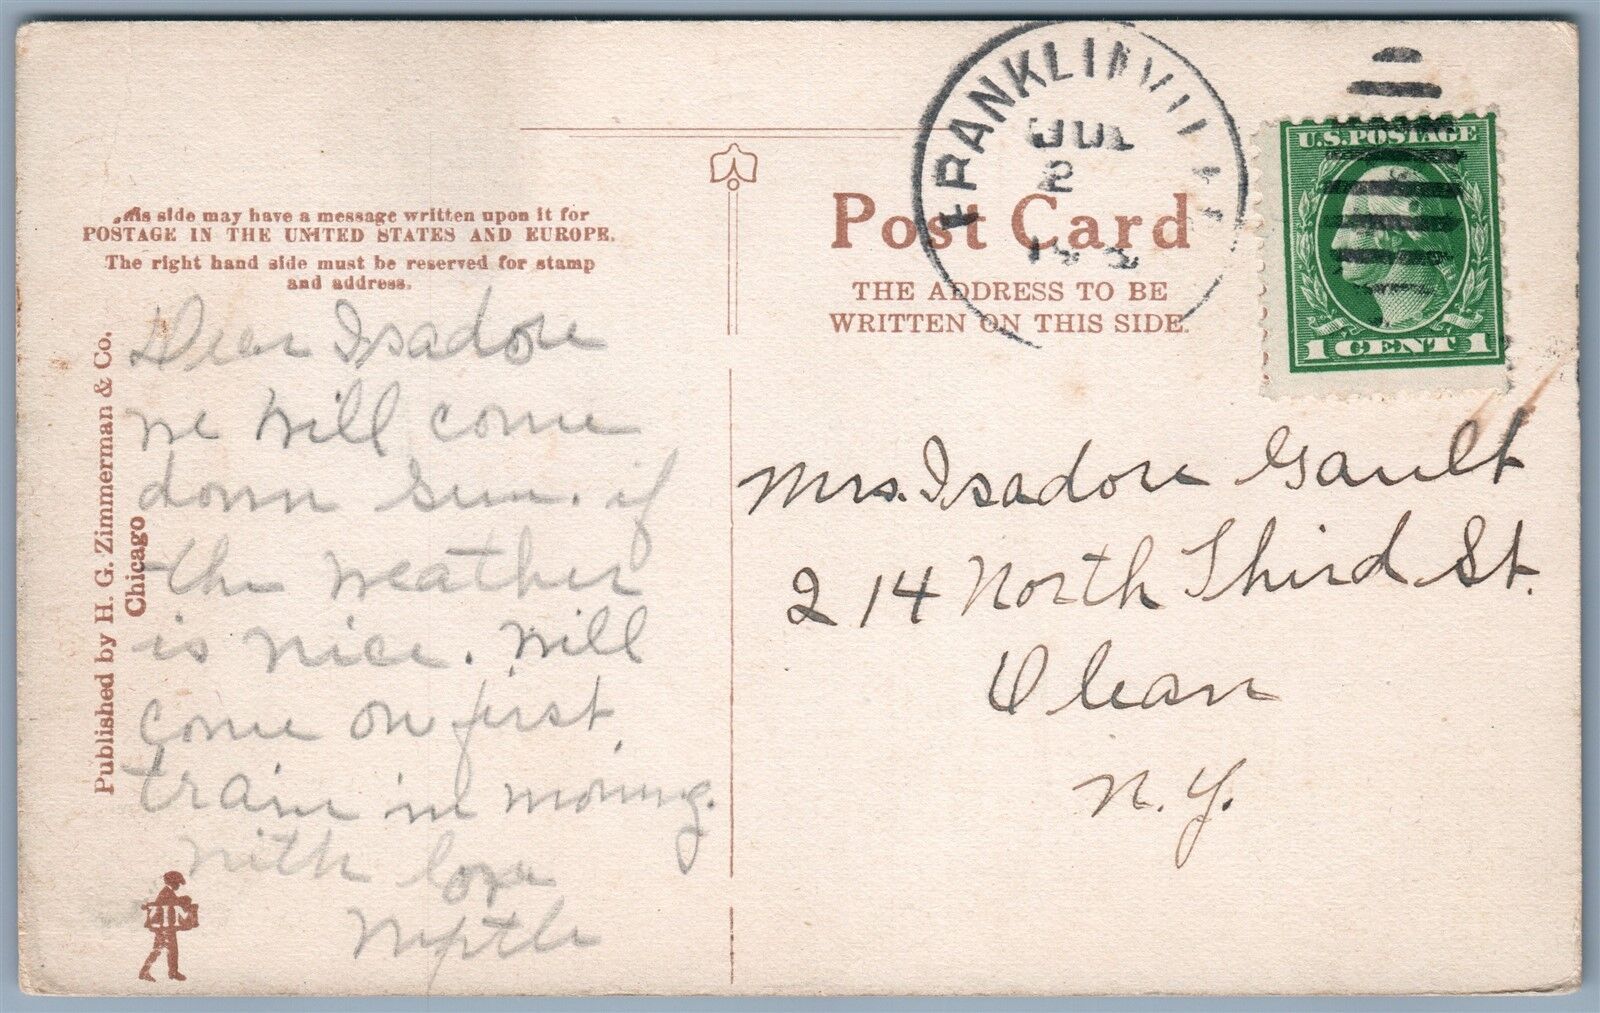 This side may have a message written upon it for
POSTAGE IN THE UNITED STATES AND EUROPE.
The right hand side must be reserved for stamp
and address.
Published by H. G. Zimmerman & Co.
Chicago
Dear Isadore
we will come
down Sun. if
the weather
is nice. Will
come on first
train in morning.
With love
Myrtle
ZIM
Post Card
THE ADDRESS TO BE
WRITTEN ON THIS SIDE.
FRANKLINVILLE
JUL
2
U.S. POSTAGE
1 CENT 1
Mrs. Isadore Gault
214 North Third St.
Olean
N.Y.